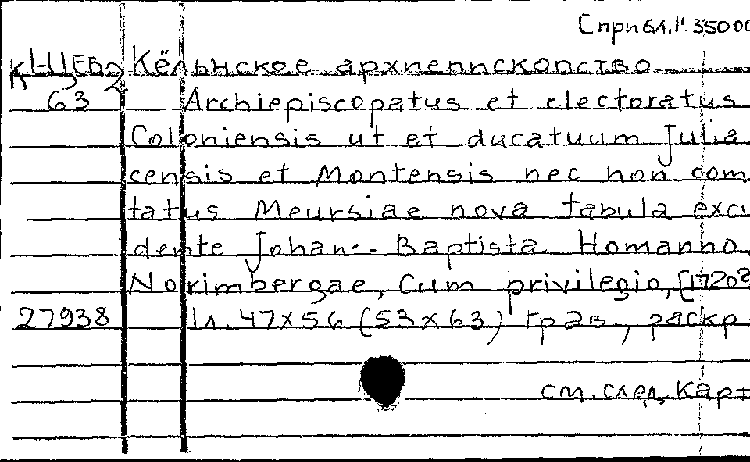 Сприбл. 1:35000
К 1-ЦЕВ2 Кёльнское архиепископство
63 Archiepiscopatus et electoratus
Coloniensis ut et ducatuum Julia
censis et Montensis nec non com
tatus Meursiae nova tabula excu
dente Johan-- Baptista Homanno,
Norimbergae, Cum privilegio, [1720?
27938 1л. 47x56 (53x63) грав., раскр
см. след. карт